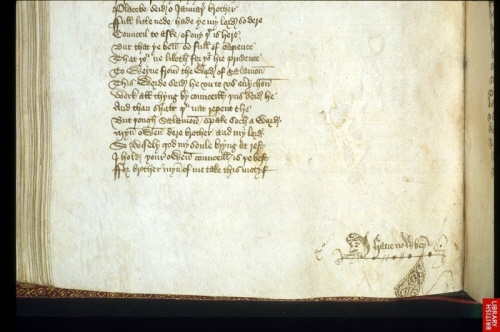 Placebo seid o January brother
Full litle nede hade ye my lord so dere
Councell to aske of ony yt is here
But that ye ben so full of sapience
That you ne liketh for yor hie prudence
To weyve from the word of Salamon
This worde seid he vn to vs euerychon
Werk all thyng by councell þus seid he
And than shalt þu nat repent the
But þough Salamon spake soch a worde
Myn owen dere brother and my lord
So wysely god my soule bryng at rest
I hold your owen councell is ye best
Ffor brother myn of me take this motyf
I haue now
BRITISH
LIBRARY